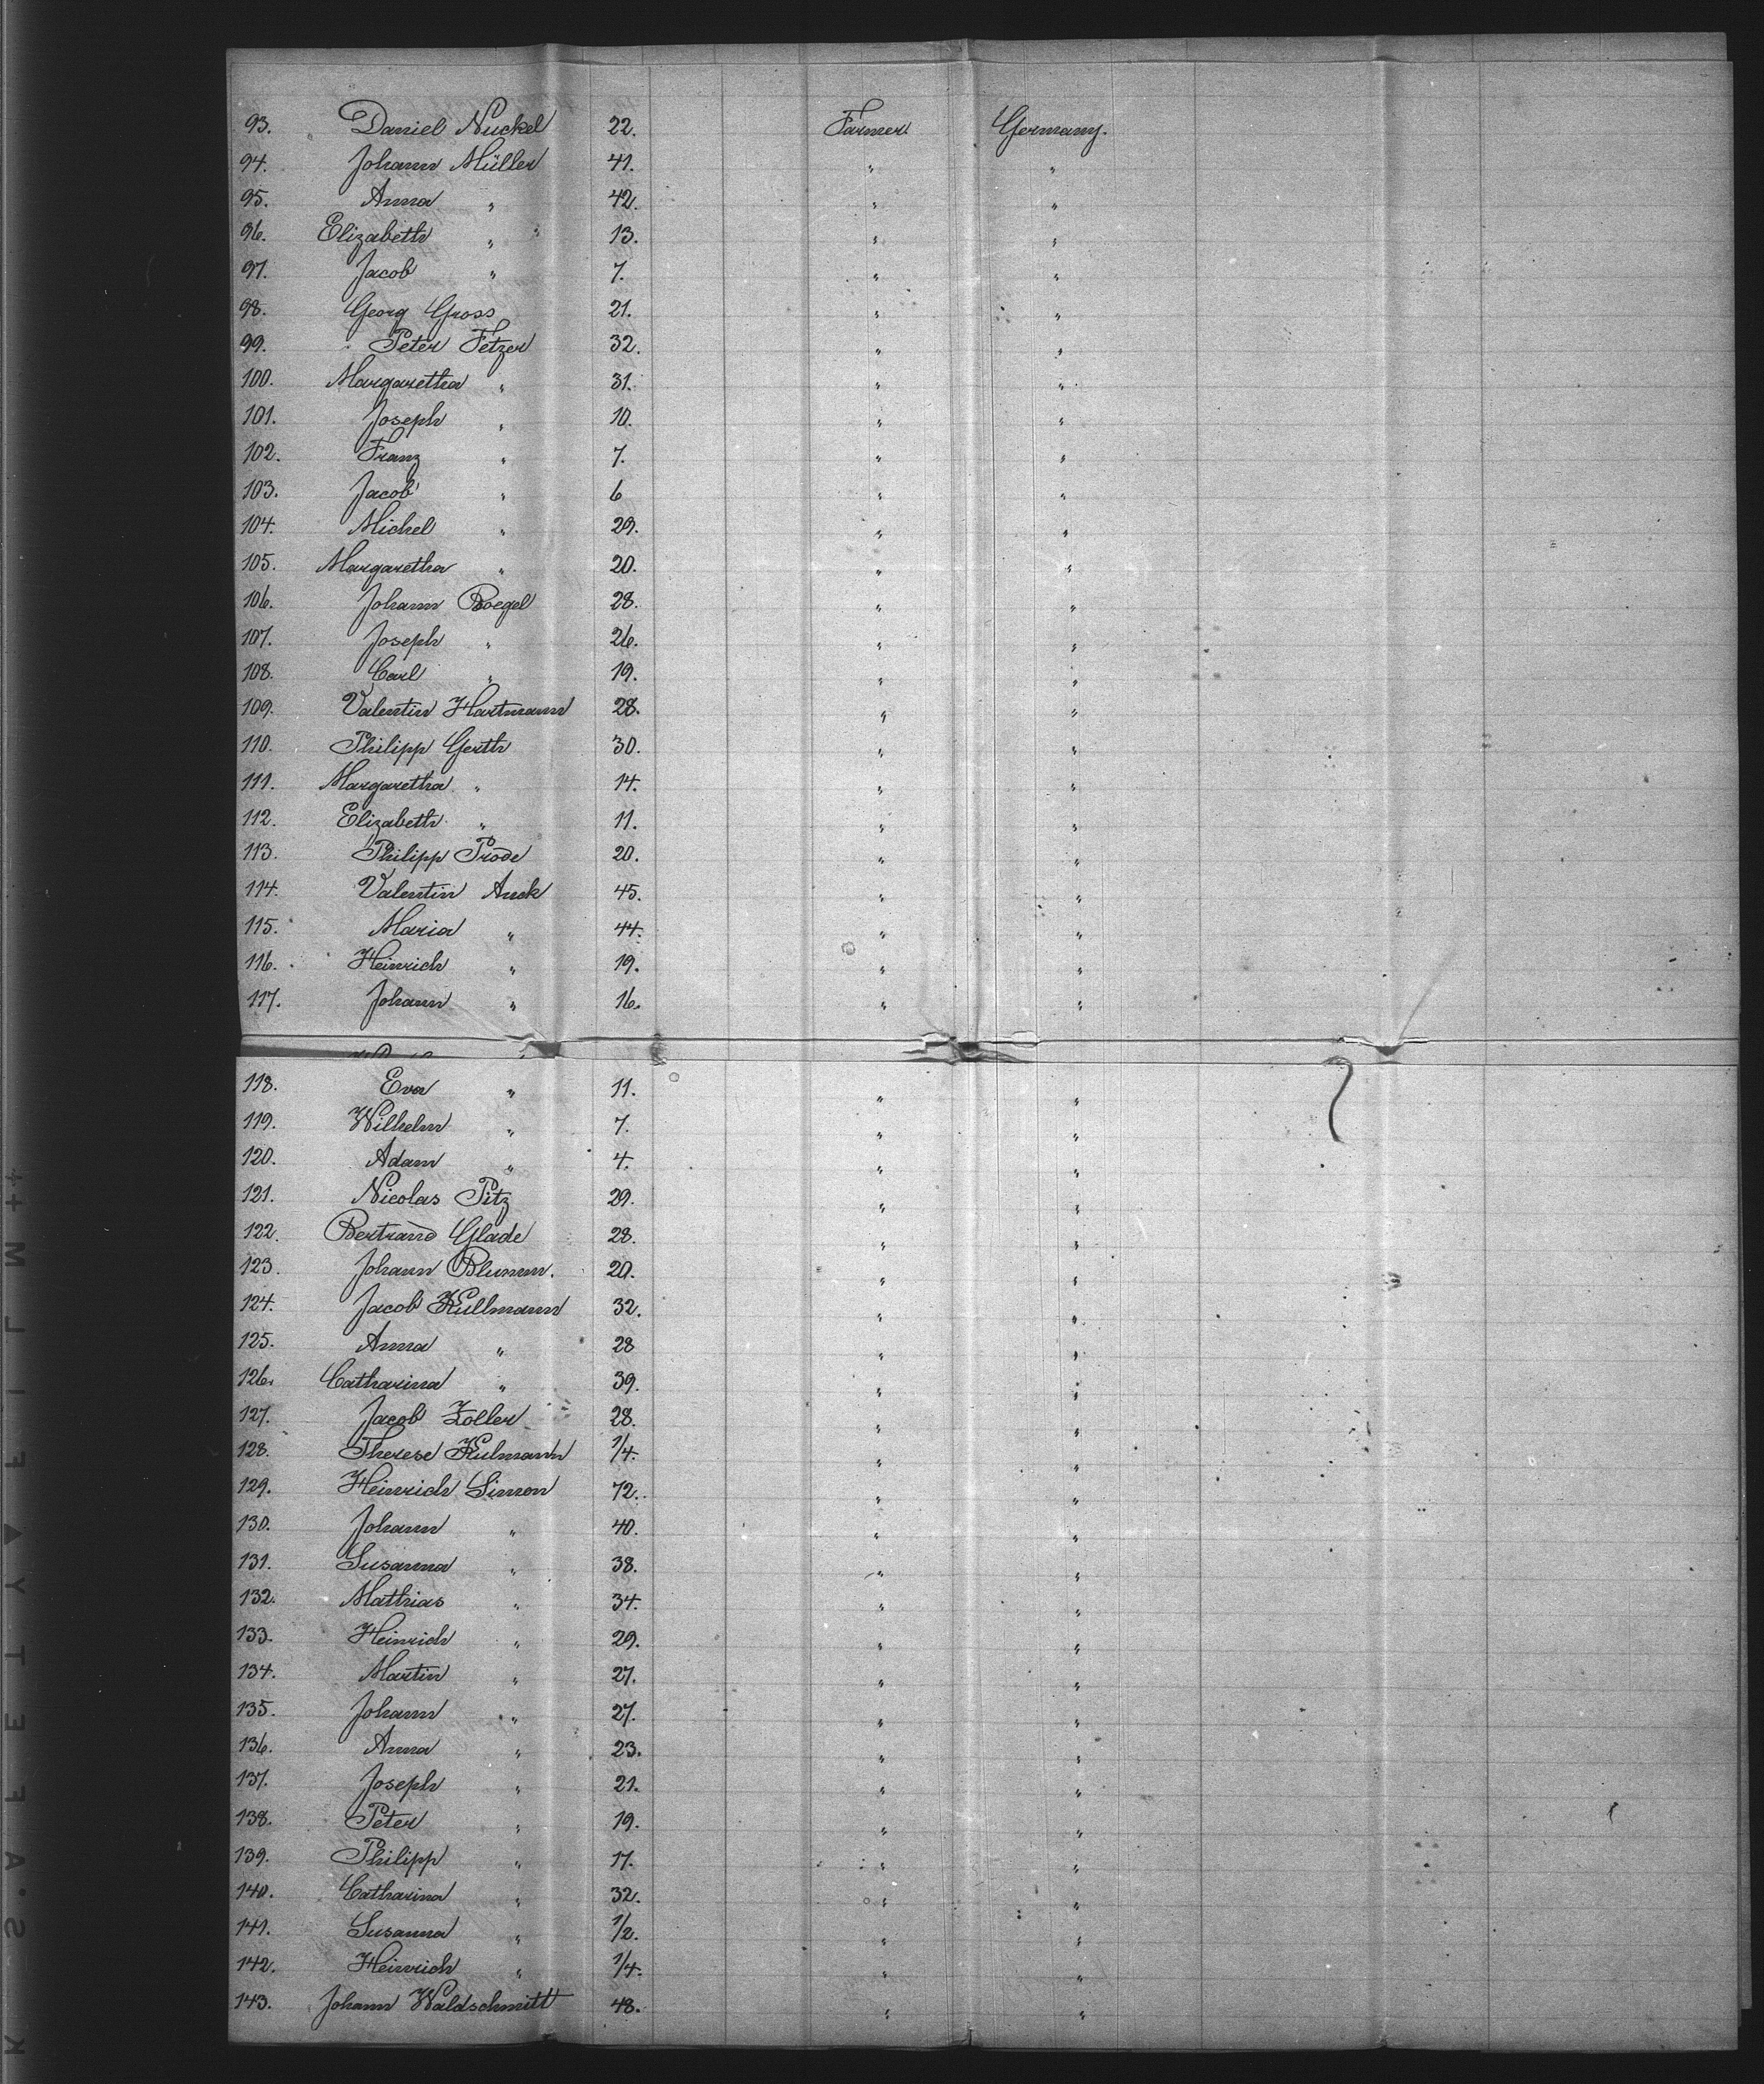 93. Daniel Nuckel 22. Farmer Germany.
94. Johann Müller 41. " "
95. Anna " 42. " "
96. Elizabeth " 13. " "
97. Jacob " 7. " "
98. Georg Gross 21. " "
99. Peter Fetzer 32. " "
100. Margaretha " 31. " "
101. Joseph " 10. " "
102. Franz " 7. " "
103. Jacob " 6 " "
104. Michel " 29. " "
105. Margaretha " 20. " "
106. Johann Boegel 28. " "
107. Joseph " 26. " "
108. Carl " 19. " "
109. Valentin Hartmann 28. " "
110. Philipp Gerth 30. " "
111. Margaretha " 14. " "
112. Elizabeth " 11. " "
113. Philipp Prode 20. " "
114. Valentin Auck 45. " "
115. Maria " 44. " "
116. Heinrich " 19. " "
117. Johann " 16. " "
118. Eva " 11. " "
119. Wilhelm " 7. " "
120. Adam " 4. " "
121. Nicolas Pitz 29. " "
122. Bertrand Glade 28. " "
123. Johann Blumm. 20. " "
124. Jacob Kullmann 32. " "
125. Anna " 28 " "
126. Catharina " 39. " "
127. Jacob Zoller 28. " "
128. Therese Kulmann 1/4. " "
129. Heinrich Simon 72. " "
130. Johann " 40. " "
131. Susanna " 38. " "
132. Mathias " 34. " "
133. Heinrich " 29. " "
134. Martin " 27. " "
135. Johann " 27. " "
136. Anna " 23. " "
137. Joseph " 21. " "
138. Peter " 19. " "
139. Philipp " 17. " "
140. Catharina " 32. " "
141. Susanna " 1/2. " "
142. Heinrich " 1/4. " "
143. Johann Waldschmitt 48. " "
K S.A F E T Y ▲ F I L M ++